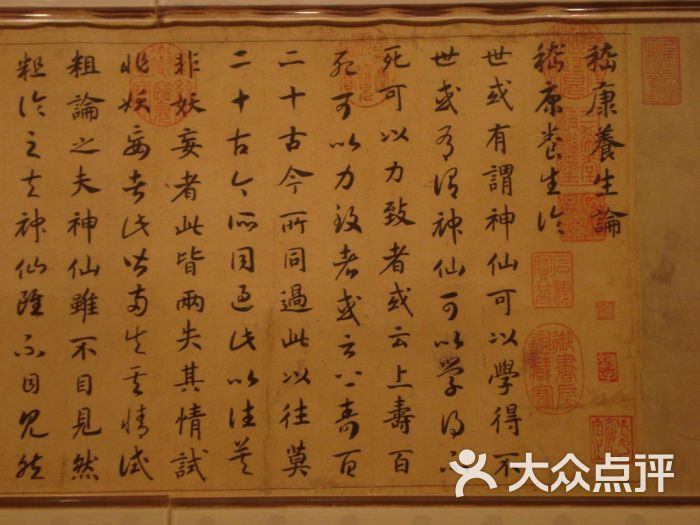 嵇康養生論
嵇康養生論
世或有謂神仙可以學得不
世或有謂神仙可以學得不
死可以力致者或云上壽百
死可以力致者或云上壽百
二十古今所同過此以往莫
二十古今所同過此以往莫
非妖妄者此皆兩失其情試
非妖妄者此皆兩失其情試
粗論之夫神仙雖不目見然
粗論之夫神仙雖不目見然
石渠寶笈
大众点评